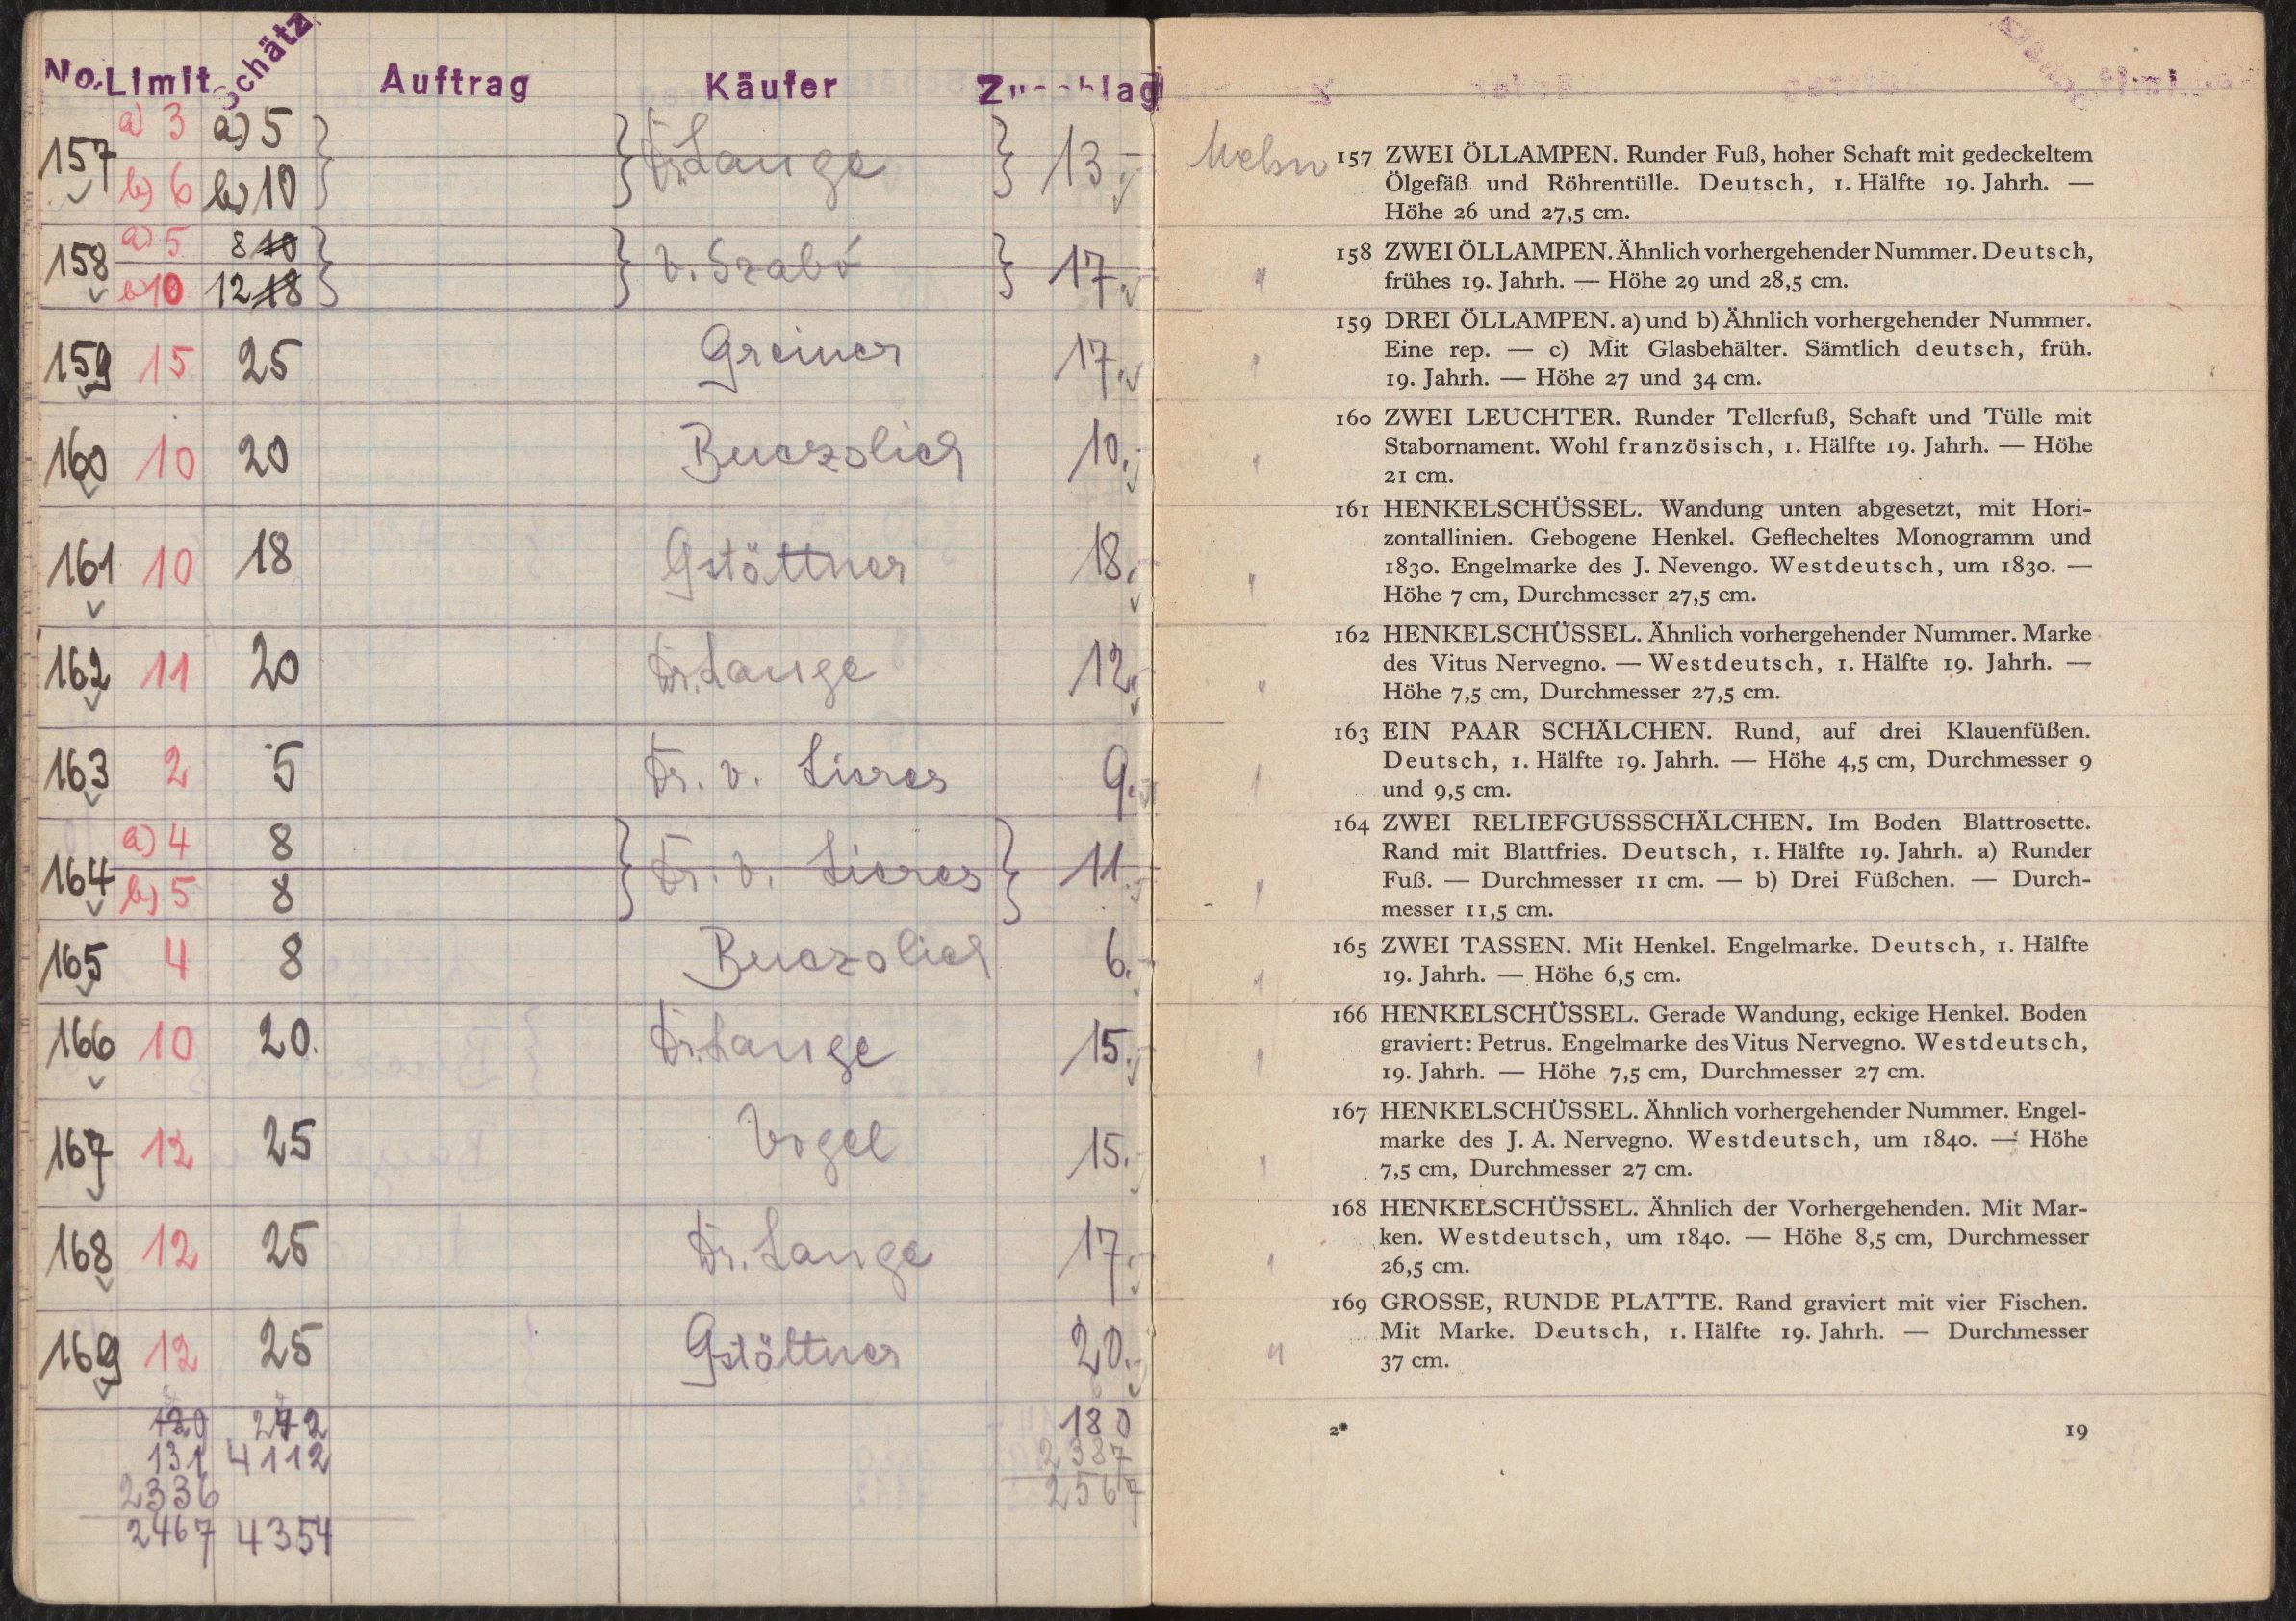 No. Limit Schätz. Auftrag Käufer Zuschlag
157 a) 3 a) 5 Dr. Lange 13.-
b) 6 b) 10
158 a) 5 8 10 v. Szabó 17.-
b) 10 12 18
159 15 25 Greiner 17.-
160 10 20 Buczolich 10.-
161 10 18 Gstöttner 18.-
162 11 20 Dr. Lange 12.-
163 2 5 Dr. v. Lieres 9.-
164 a) 4 8 Dr. v. Lieres 11.-
b) 5 8
165 4 8 Buczolich 6.-
166 10 20. Dr. Lange 15.-
167 12 25 Vogel 15.-
168 12 25 Dr. Lange 17.-
169 12 25 Gstöttner 20.-
180
131 4112 2387
2336 2567
2467 4354
157 ZWEI ÖLLAMPEN. Runder Fuß, hoher Schaft mit gedeckeltem
Ölgefäß und Röhrentülle. Deutsch, 1. Hälfte 19. Jahrh. —
Höhe 26 und 27,5 cm.
158 ZWEI ÖLLAMPEN. Ähnlich vorhergehender Nummer. Deutsch,
frühes 19. Jahrh. — Höhe 29 und 28,5 cm.
159 DREI ÖLLAMPEN. a) und b) Ähnlich vorhergehender Nummer.
Eine rep. — c) Mit Glasbehälter. Sämtlich deutsch, früh.
19. Jahrh. — Höhe 27 und 34 cm.
160 ZWEI LEUCHTER. Runder Tellerfuß, Schaft und Tülle mit
Stabornament. Wohl französisch, 1. Hälfte 19. Jahrh. — Höhe
21 cm.
161 HENKELSCHÜSSEL. Wandung unten abgesetzt, mit Hori-
zontallinien. Gebogene Henkel. Geflecheltes Monogramm und
1830. Engelmarke des J. Nevengo. Westdeutsch, um 1830. —
Höhe 7 cm, Durchmesser 27,5 cm.
162 HENKELSCHÜSSEL. Ähnlich vorhergehender Nummer. Marke
des Vitus Nervegno. — Westdeutsch, 1. Hälfte 19. Jahrh. —
Höhe 7,5 cm, Durchmesser 27,5 cm.
163 EIN PAAR SCHÄLCHEN. Rund, auf drei Klauenfüßen.
Deutsch, 1. Hälfte 19. Jahrh. — Höhe 4,5 cm, Durchmesser 9
und 9,5 cm.
164 ZWEI RELIEFGUSSSCHÄLCHEN. Im Boden Blattrosette.
Rand mit Blattfries. Deutsch, 1. Hälfte 19. Jahrh. a) Runder
Fuß. — Durchmesser 11 cm. — b) Drei Füßchen. — Durch-
messer 11,5 cm.
165 ZWEI TASSEN. Mit Henkel. Engelmarke. Deutsch, 1. Hälfte
19. Jahrh. — Höhe 6,5 cm.
166 HENKELSCHÜSSEL. Gerade Wandung, eckige Henkel. Boden
graviert: Petrus. Engelmarke des Vitus Nervegno. Westdeutsch,
19. Jahrh. — Höhe 7,5 cm, Durchmesser 27 cm.
167 HENKELSCHÜSSEL. Ähnlich vorhergehender Nummer. Engel-
marke des J. A. Nervegno. Westdeutsch, um 1840. — Höhe
7,5 cm, Durchmesser 27 cm.
168 HENKELSCHÜSSEL. Ähnlich der Vorhergehenden. Mit Mar-
ken. Westdeutsch, um 1840. — Höhe 8,5 cm, Durchmesser
26,5 cm.
169 GROSSE, RUNDE PLATTE. Rand graviert mit vier Fischen.
Mit Marke. Deutsch, 1. Hälfte 19. Jahrh. — Durchmesser
37 cm.
2* 19